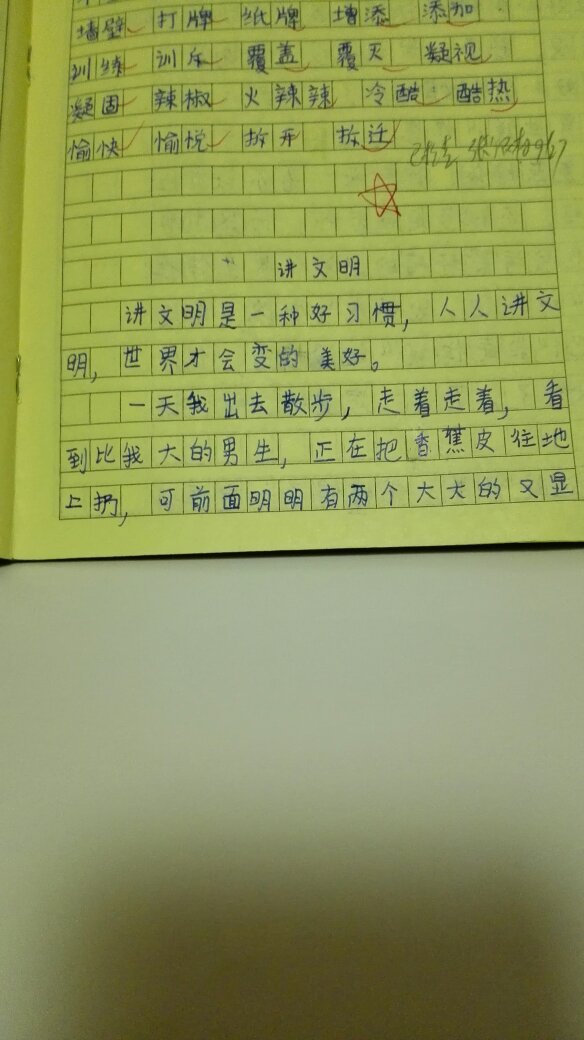 墙壁 打牌 纸牌 增添 添加
训练 训斥 覆盖 覆灭 凝视
凝固 辣椒 火辣辣 冷酷 酷热
愉快 愉悦 拆开 拆迁
讲文明
讲文明是一种好习惯，人人讲文
明，世界才会变的美好。
一天我出去散步，走着走着，看
到比我大的男生，正在把香蕉皮往地
上扔，可前面明明有两个大大的又显